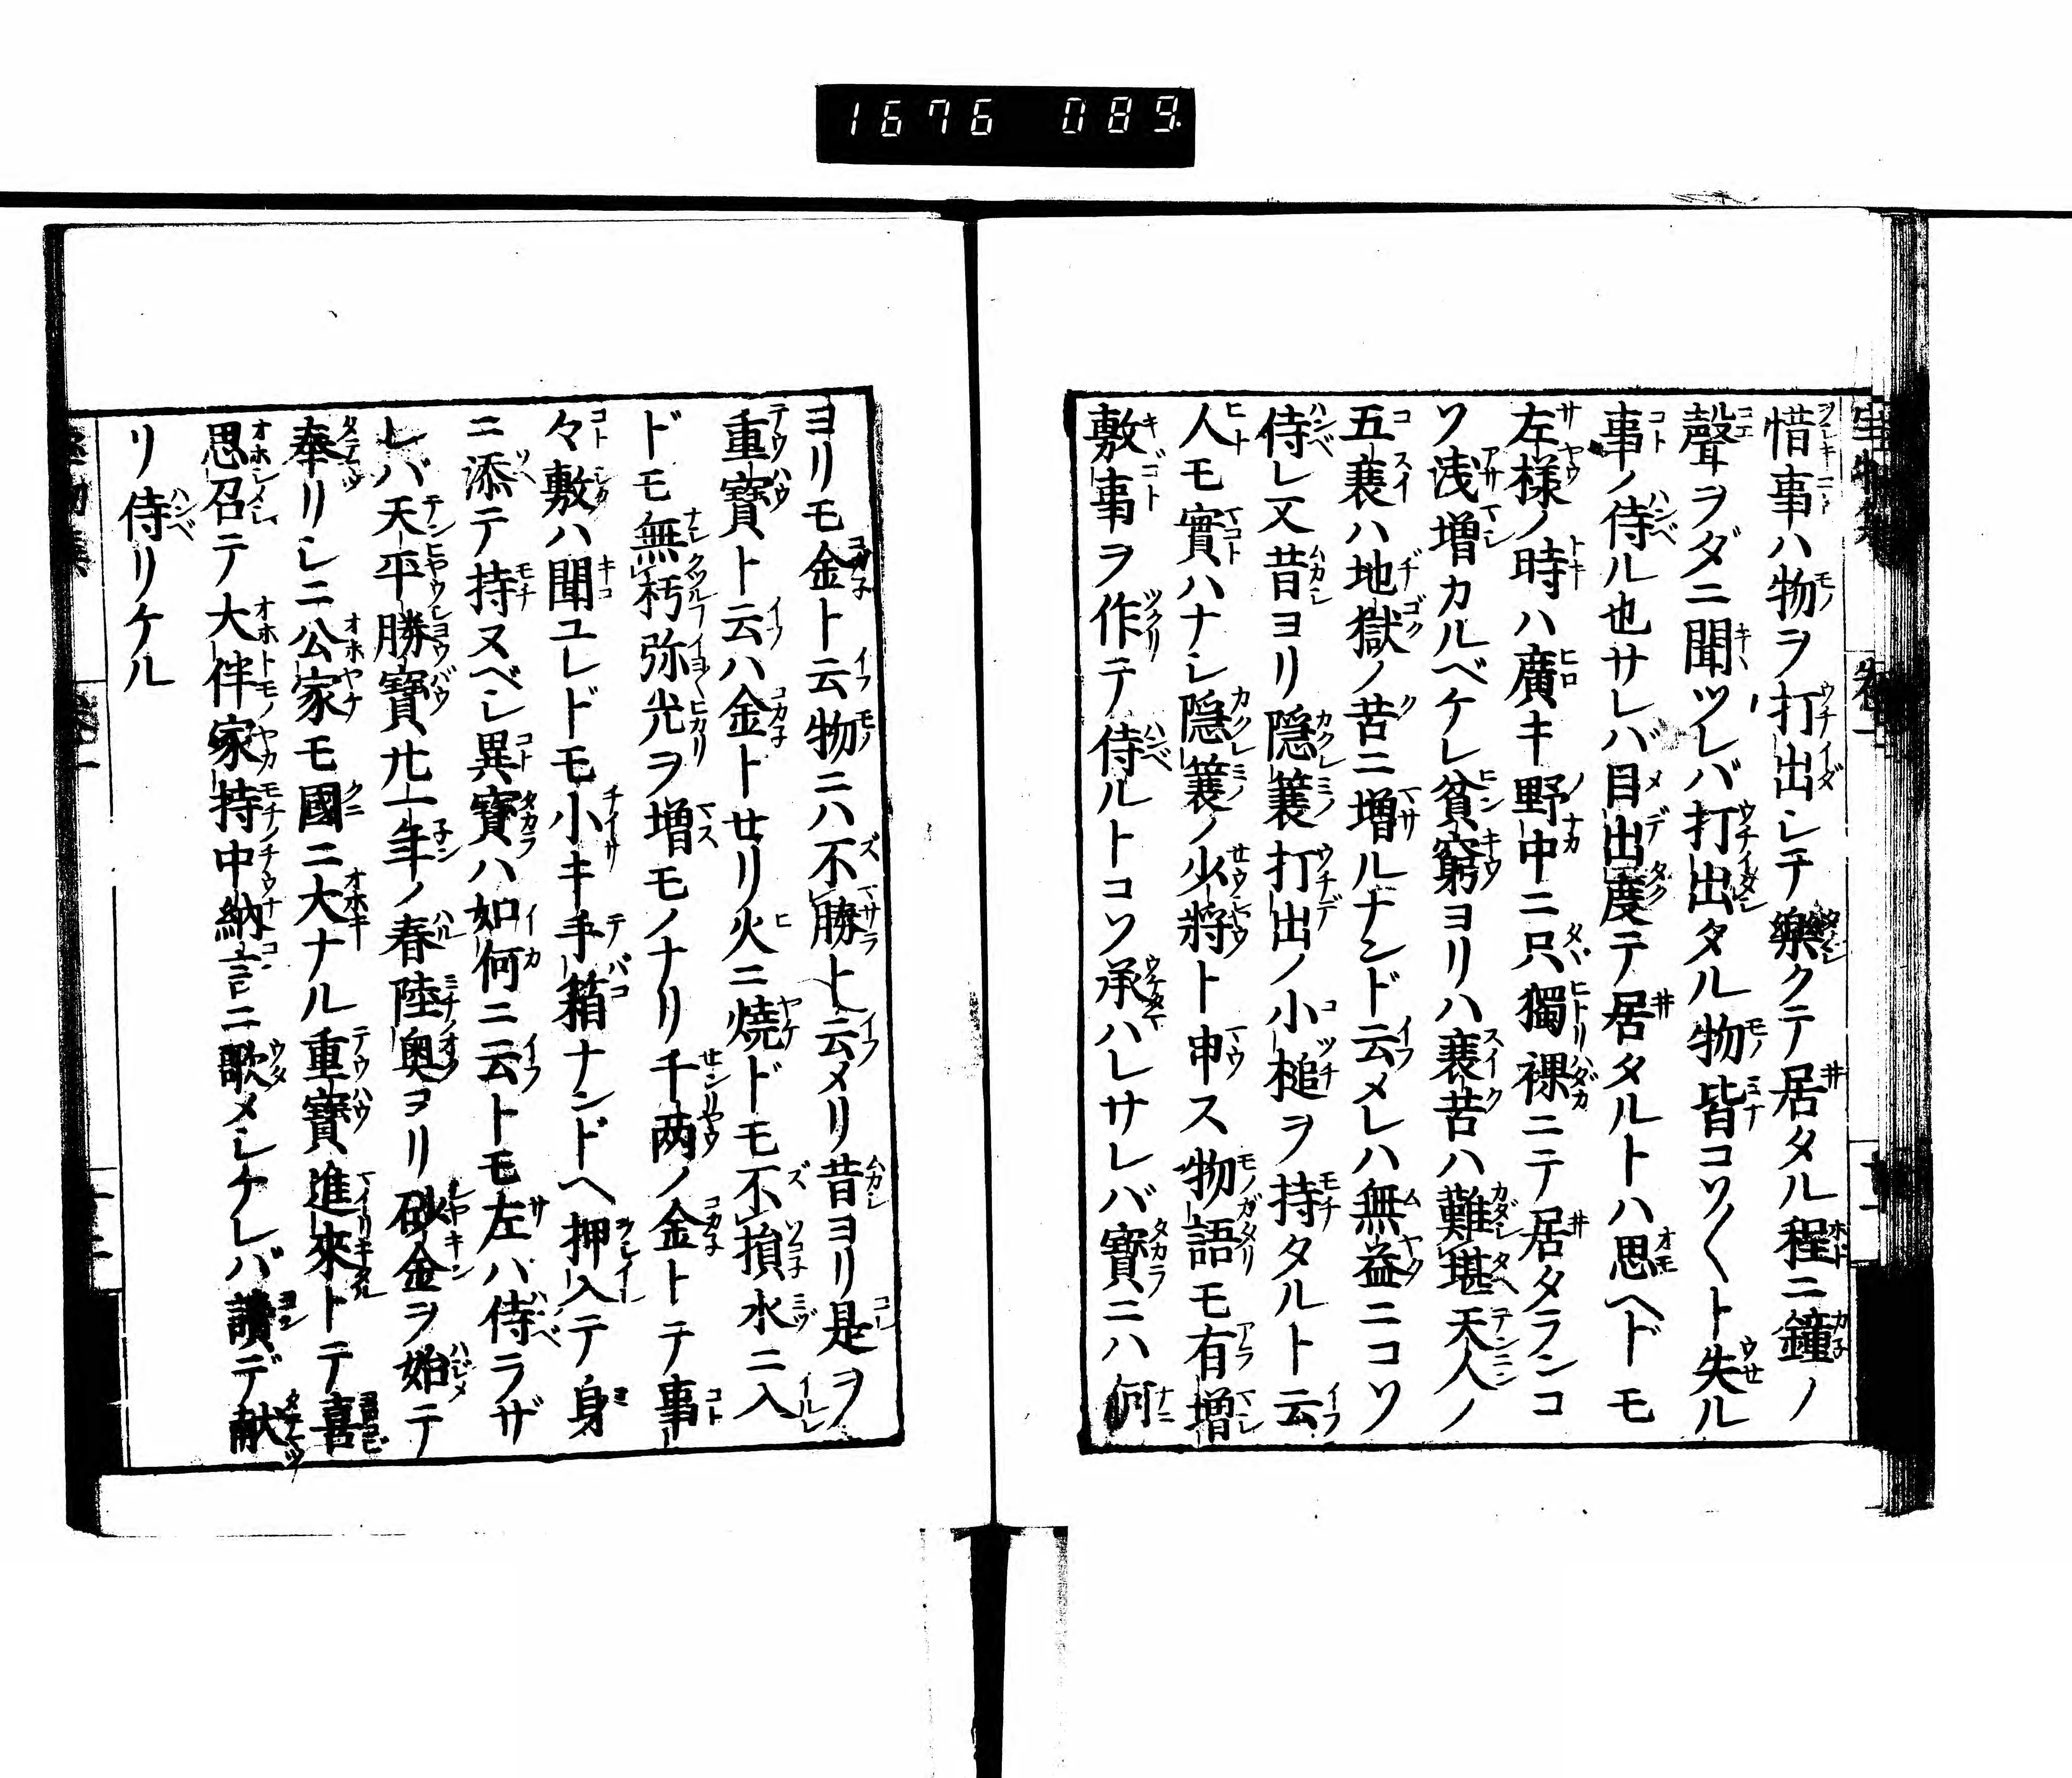 1676 089
惜事ハ物ヲ打出シテ樂クテ居タル程ニ鐘ノ
聲ヲダニ聞ツレバ打出タル物皆コソ〱ト失ル
事ノ侍ル也サレバ目出度テ居タルトハ思ヘドモ
左様ノ時ハ廣キ野中ニ只獨裸ニテ居タランコ
ソ浅増カルベケレ貧窮ヨリハ衰苦ハ難堪天人ノ
五衰ハ地獄ノ苦ニ増ルナンド云メレハ無益ニコソ
侍レ又昔ヨリ隠簑打出ノ小槌ヲ持タルト云
人モ實ハナシ隠簑ノ少将ト申ス物語モ有増
敷事ヲ作テ侍ルトコソ承ハレサレバ寶ニハ何
ヨリモ金ト云物ニハ不勝ト云メリ昔ヨリ是ヲ
重寶ト云ハ金トせリ火ニ燒ドモ不損水ニ入
ドモ無朽弥光ヲ増モノナリ千两ノ金トテ事
々敷ハ聞ユレドモ小キ手箱ナンドヘ押入テ身
ニ添テ持ヌベシ異寶ハ如何ニ云トモ左ハ侍ラザ
レバ天平勝寶廿一年ノ春陸奥ヨリ砂金ヲ始テ
奉リシニ公家モ國ニ大ナル重寶進來トテ喜
思召テ大伴家持中納言ニ歌メシケレバ讀デ献
リ侍リケル